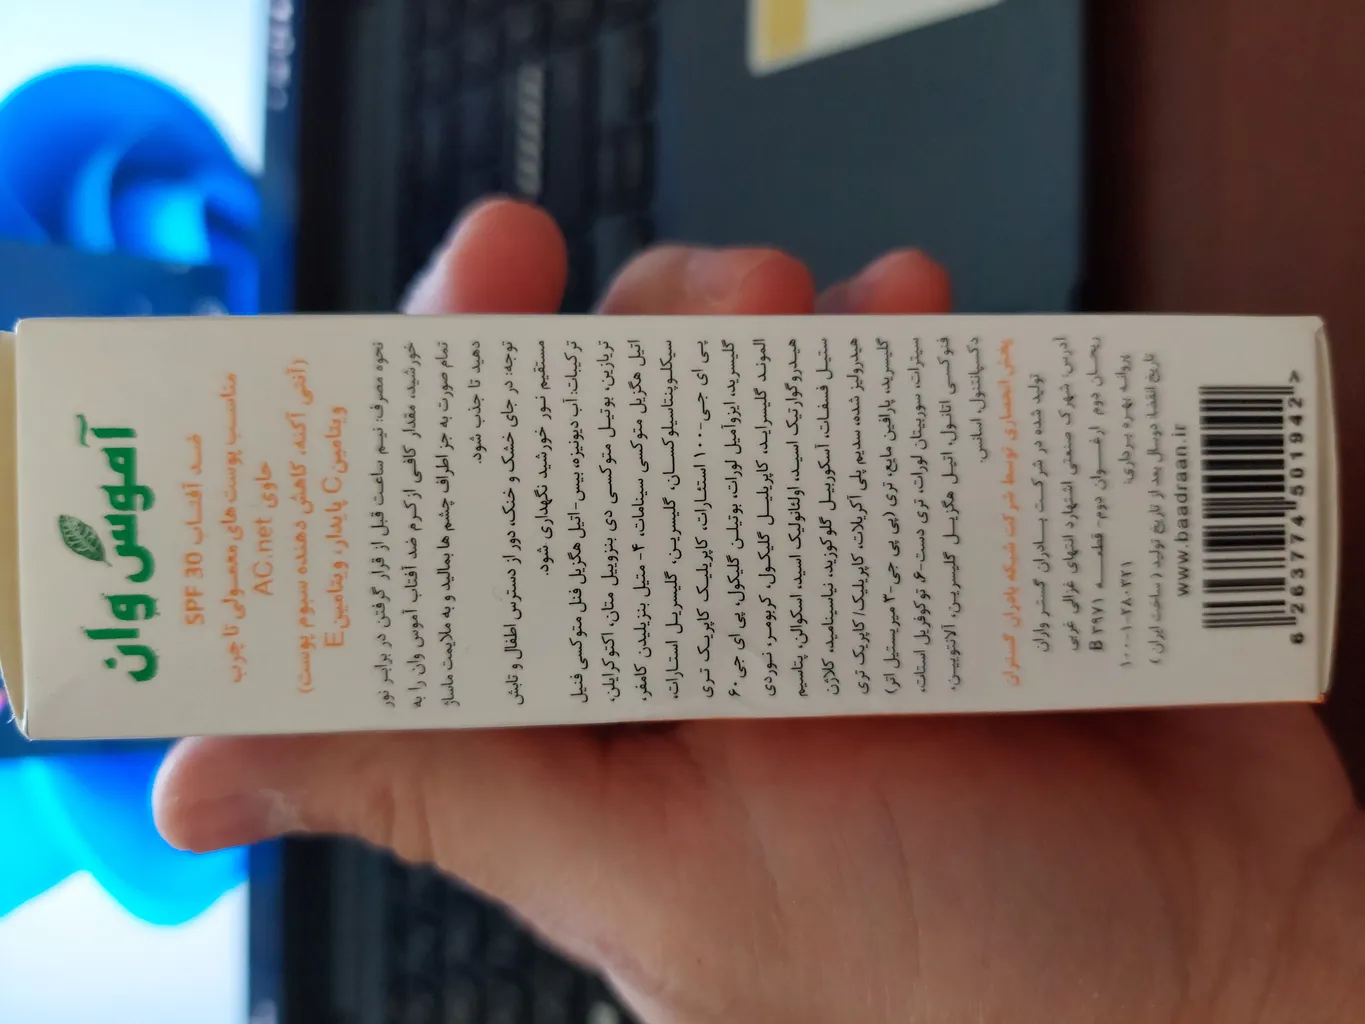 آموس وان
ضد آفتاب SPF 30
مناسب پوست های معمولی تا چرب
حاوی AC.net
(آنتی آکنه، کاهش دهنده سبوم پوست)
ویتامین C پایدار، ویتامین E
نحوه مصرف: نیم ساعت قبل از قرار گرفتن در برابر نور
خورشید، مقدار کافی از کرم ضد آفتاب آموس وان را به
تمام صورت به جز اطراف چشم ها بمالید و به ملایمت ماساژ
دهید تا جذب شود.
توجه: در جای خشک و خنک، دور از دسترس اطفال و تابش
مستقیم نور خورشید نگهداری شود.
ترکیبات: آب دیونیزه، بیس-اتیل هگزیل فنل متوکسی فنیل
تریازین، بوتیل متوکسی دی بنزوییل متان، اکتوکرایلن،
اتیل هگزیل متوکسی سینامات، ۴- متیل بنزیلیدن کامفر،
سیکلوپنتاسیلوکسان، گلیسرین، گلیسریل استارات،
پی ای جی-۱۰۰ استئارات، کاپریلیک کاپریک تری
گلیسرید، ایزوآمیل لورات، بوتیلن گلیکول، پی ای جی ۶۰
الموند گلیسراید، کاپریلیل گلیکول، کربومر، نوردی
هیدروگوارتیک اسید، اولئانولیک اسید، اسکوالن، پتاسیم
ستیل فسفات، آسکوربیل گلوکوزید، نیاسینامید، کلاژن
هیدرولیز شده، سدیم پلی آکریلات، کاپریلیک/ کاپریک تری
گلیسرید، پارافین مایع، تری (پی پی جی-۳ میریستیل اتر)
سیترات، سوربیتان لورات، تری دست-۶، توکوفریل استات،
فنوکسی اتانول، اتیل هگزیل گلیسرین، آلانتویین،
دکسپانتنول، اسانس.
پخش انحصاری توسط شرکت شبکه بادران گستران
تولید شده در شرکت بادران گستر واران
آدرس: شهرک صنعتی اشتهارد انتهای غزالی غربی
ریحان دوم ارغوان دوم- قطعه B ۳۹۷۱
پروانه بهره برداری:
۱۰۰۰-۱-۲۸۰۳۲۱
تاریخ انقضا: دو سال بعد از تاریخ تولید ( ساخت ایران )
www.baadraan.ir
6 263774 501942 >